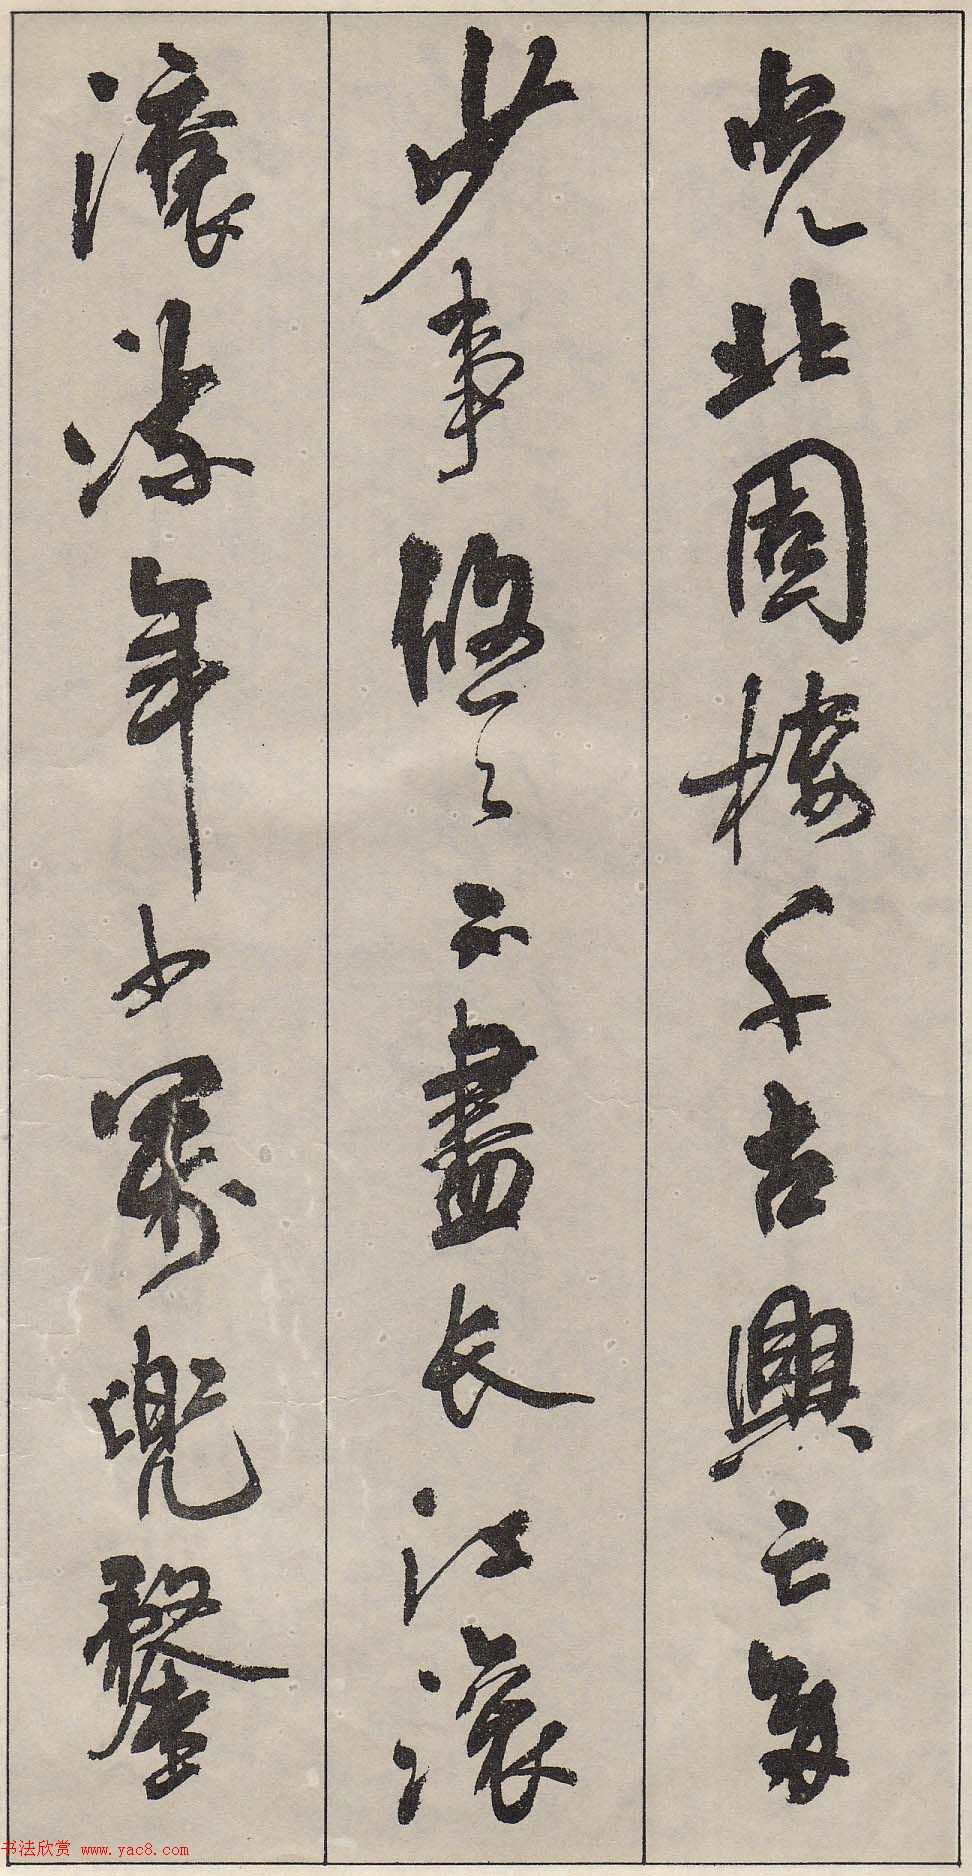 光北固樓千古興亡多
少事悠〻不盡長江滾
滾流年少萬兜鍪
书法欣赏 www.yac8.com